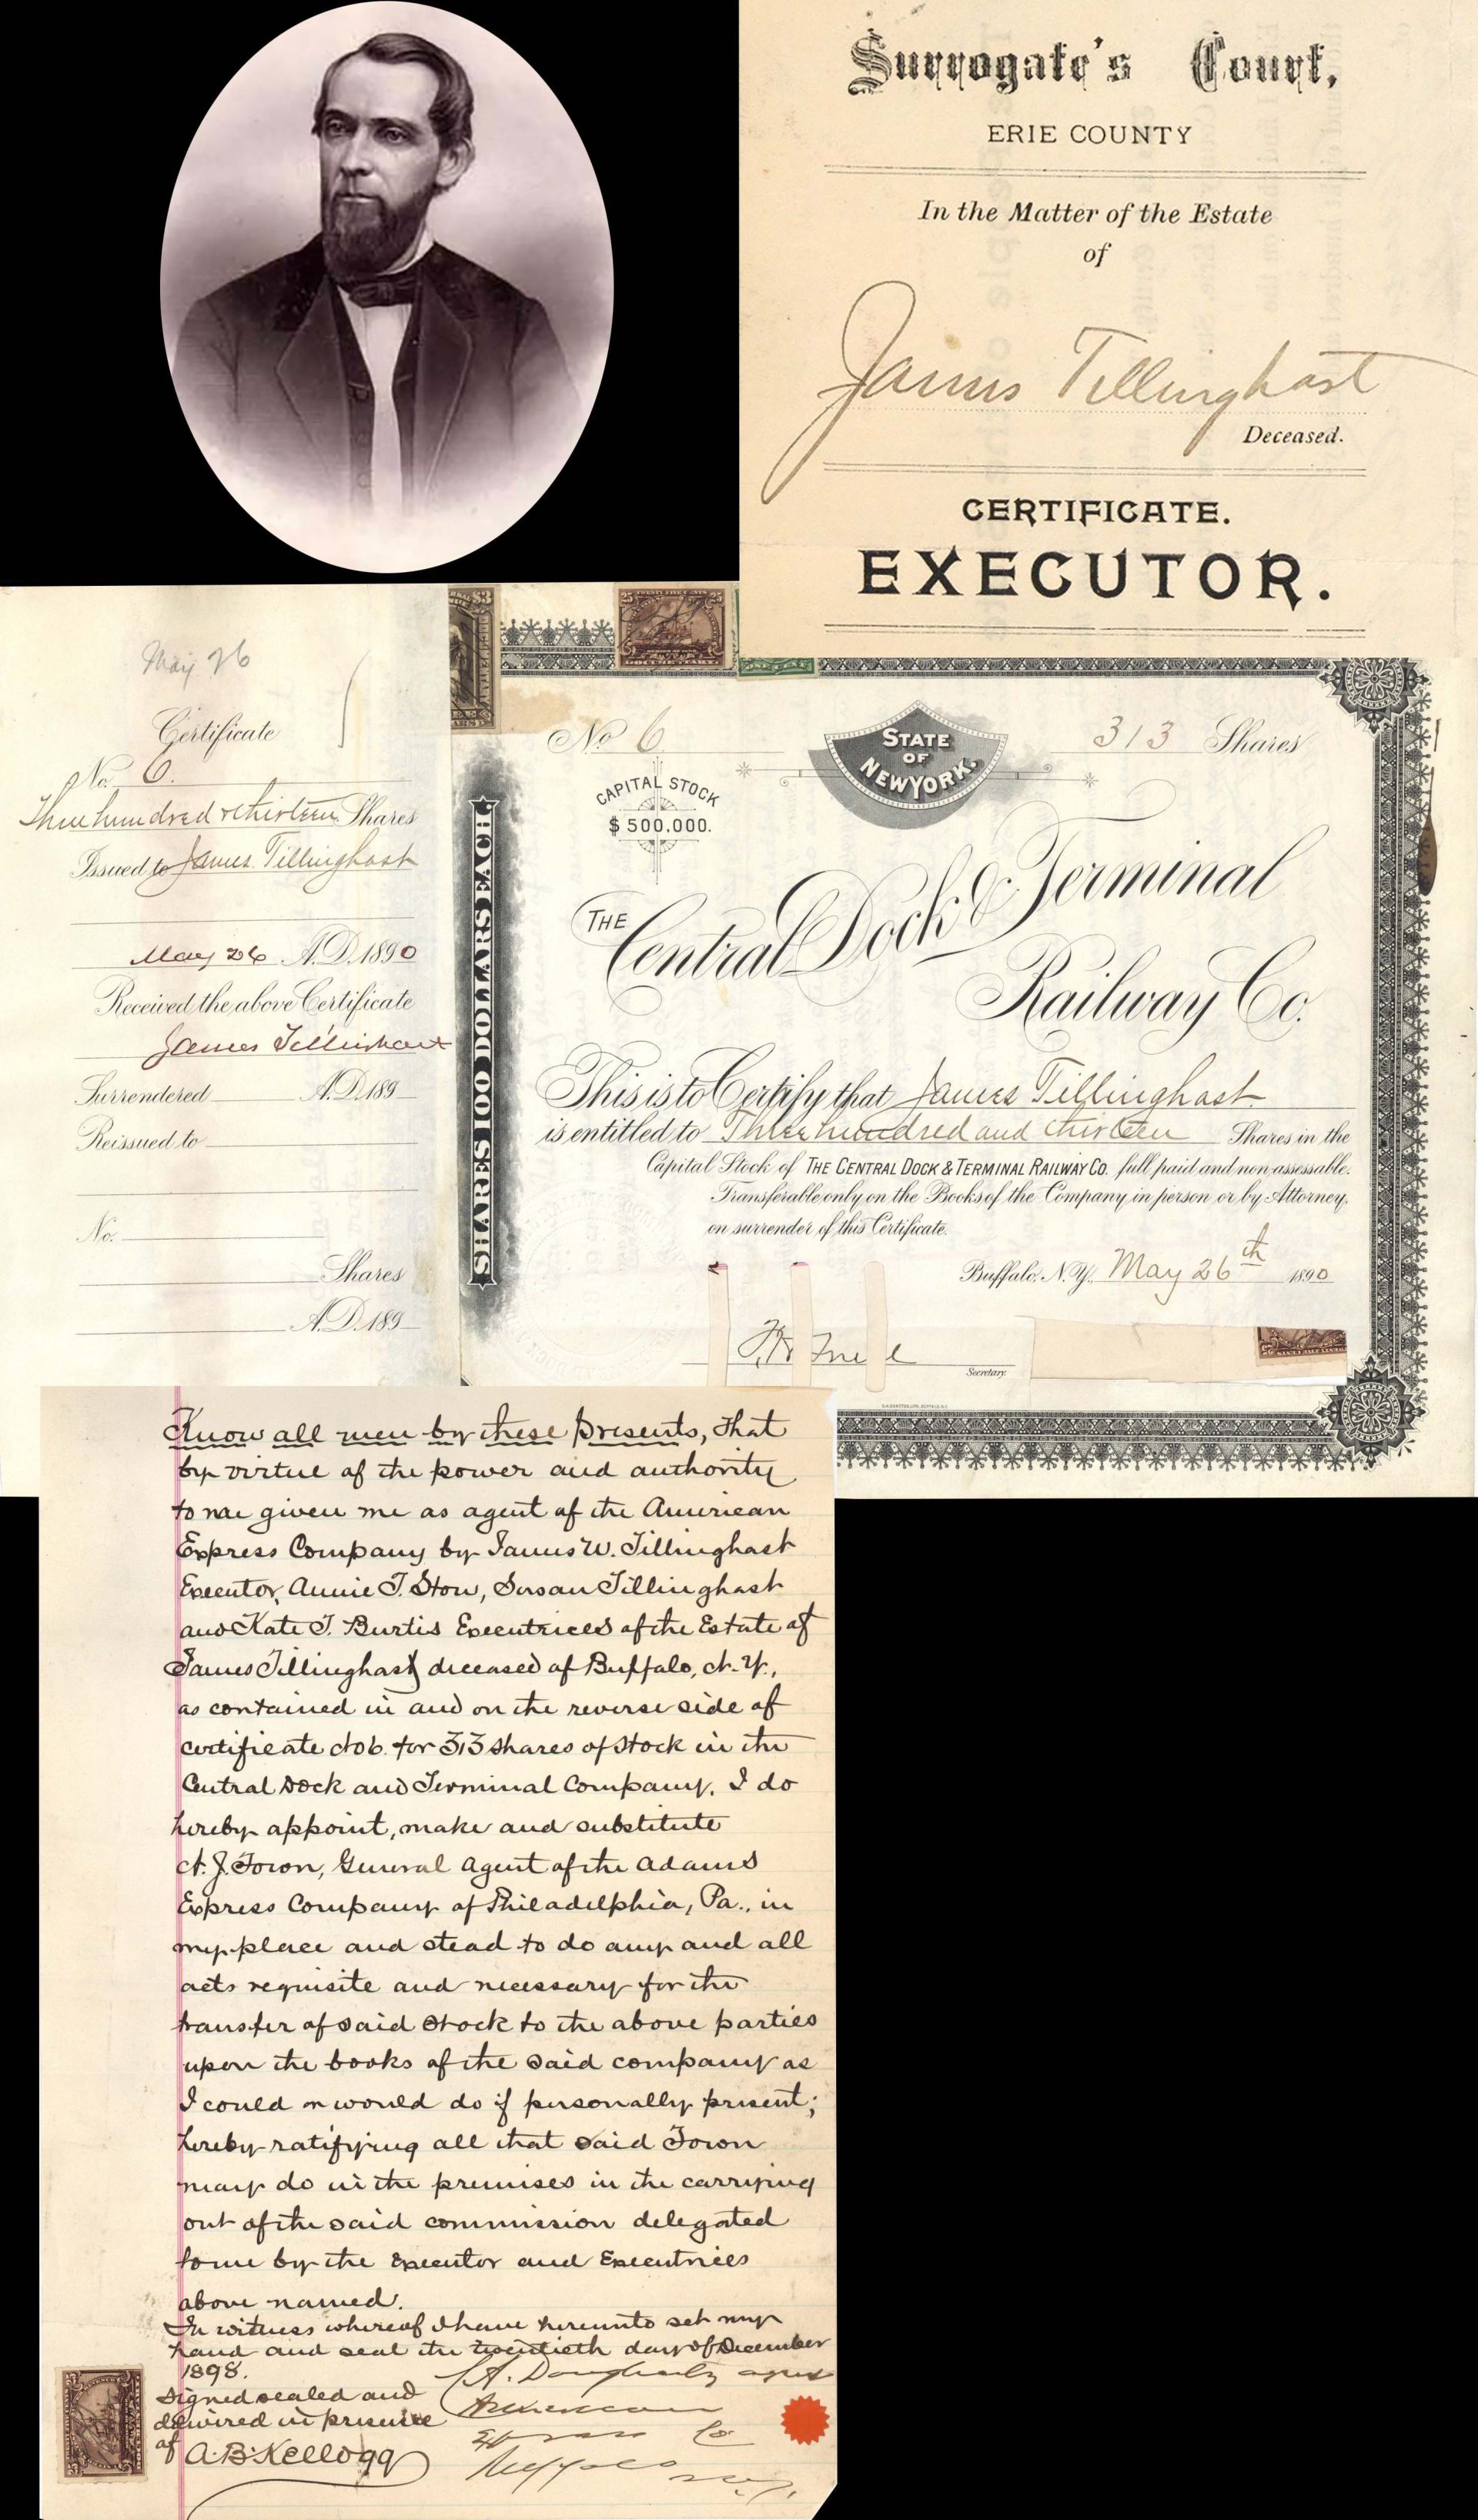 Surrogate's Court,
ERIE COUNTY
In the Matter of the Estate
of
James Tillinghast
Deceased.
CERTIFICATE.
EXECUTOR.
$3
25 TWENTY FIVE CENTS 25
DOCUMENTARY
May 26
Certificate
No. 6.
Three hundred & thirteen Shares
Issued to James Tillinghast
May 26 A.D. 1890
Received the above Certificate
James Tillinghast
Surrendered A.D. 189
Reissued to
No.
Shares
A.D. 189
SHARES 100 DOLLARS EACH.
No 6
STATE
OF
NEW YORK.
313 Shares
CAPITAL STOCK
$500,000.
THE
Central Dock & Terminal
Railway Co.
This is to Certify that James Tillinghast
is entitled to Three hundred and thirteen Shares in the
Capital Stock of THE CENTRAL DOCK & TERMINAL RAILWAY CO. full paid and non assessable.
Transferable only on the Books of the Company in person or by Attorney,
on surrender of this Certificate.
Buffalo, N.Y. May 26th 1890
Secretary.
Know all men by these presents, that
by virtue of the power and authority
to me given me as agent of the American
Express Company by James W. Tillinghast
Executor, Annie T. Stow, Susan Tillinghast
and Kate T. Burtis Executrices of the Estate of
James Tillinghast deceased of Buffalo, N.Y.,
as contained in and on the reverse side of
certificate No 6. for 313 shares of stock in the
Central Dock and Terminal Company. I do
hereby appoint, make and substitute
N. J. Town, General Agent of the Adams
Express Company of Philadelphia, Pa., in
my place and stead to do any and all
acts requisite and necessary for the
transfer of said stock to the above parties
upon the books of the said company as
I could or would do if personally present;
hereby ratifying all that said Town
may do in the premises in the carrying
out of the said commission delegated
to me by the Executor and Executrices
above named.
In witness whereof I have hereunto set my
hand and seal the twentieth day of December
1898.
Signed sealed and
delivered in presence
of A. B. Kellogg
A. Dougherty agent
American
Express Co
Buffalo N.Y.